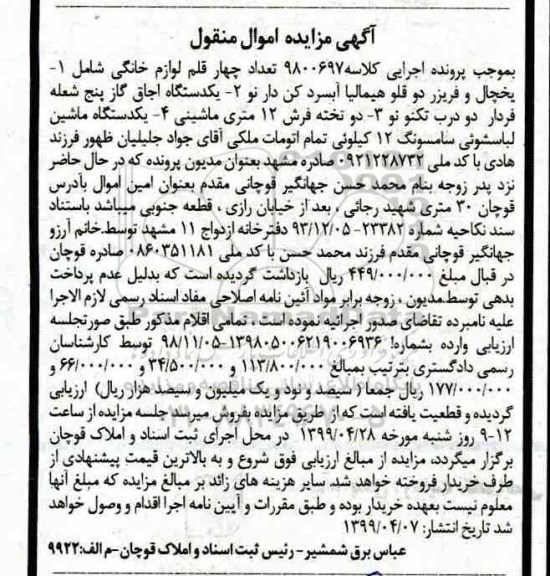 آگهی مزایده اموال منقول
بموجب پرونده اجرایی کلاسه ۹۸۰۰۶۹۷ تعداد چهار قلم لوازم خانگی شامل ۱-
یخچال و فریزر دو قلو هیمالیا آبسرد کن دار نو ۲- یکدستگاه اجاق گاز پنج شعله
فردار دو درب تکنو نو ۳- دو تخته فرش ۱۲ متری ماشینی ۴- یکدستگاه ماشین
لباسشوئی سامسونگ ۱۲ کیلوئی تمام اتومات ملکی آقای جواد جلیلیان ظهور فرزند
هادی با کد ملی ۰۹۲۱۲۲۸۷۳۲ صادره مشهد بعنوان مدیون پرونده که در حال حاضر
نزد پدر زوجه بنام محمد حسن جهانگیر قوچانی مقدم بعنوان امین اموال بآدرس
قوچان ۳۰ متری شهید رجائی ، بعد از خیابان رازی ، قطعه جنوبی میباشد باستناد
سند نکاحیه شماره ۲۳۳۸۲- ۹۳/۱۲/۰۵ دفترخانه ازدواج ۱۱ مشهد توسط.خانم آرزو
جهانگیر قوچانی مقدم فرزند محمد حسن با کد ملی ۰۸۶۰۳۵۱۱۸۱ صادره قوچان
در قبال مبلغ ۴۴۹/۰۰۰/۰۰۰ ریال بازداشت گردیده است که بدلیل عدم پرداخت
بدهی توسط.مدیون ، زوجه برابر مواد آئین نامه اصلاحی مفاد اسناد رسمی لازم الاجرا
علیه نامبرده تقاضای صدور اجرائیه نموده است ، تمامی اقلام مذکور طبق صورتجلسه
ارزیابی وارده بشماره: ۱۳۹۸۰۵۰۰۶۲۱۹۰۰۶۹۳۶-۹۸/۱۱/۰۵ توسط کارشناسان
رسمی دادگستری بترتیب بمبالغ ۱۱۳/۸۰۰/۰۰۰ و ۳۴/۵۰۰/۰۰۰ و ۶۶/۰۰۰/۰۰۰ و
۱۷۷/۰۰۰/۰۰۰ ریال جمعا ( سیصد و نود و یک میلیون و سیصد هزار ریال) ارزیابی
گردیده و قطعیت یافته است که از طریق مزایده بفروش میرسد جلسه مزایده از ساعت
۹-۱۲ روز شنبه مورخه ۱۳۹۹/۰۴/۲۸ در محل اجرای ثبت اسناد و املاک قوچان
برگزار میگردد، مزایده از مبالغ ارزیابی فوق شروع و به بالاترین قیمت پیشنهادی از
طرف خریدار فروخته خواهد شد. سایر هزینه های زائد بر مبالغ مزایده که مبلغ آنها
معلوم نیست بعهده خریدار بوده و طبق مقررات و آیین نامه اجرا اقدام و وصول خواهد
شد تاریخ انتشار: ۱۳۹۹/۰۴/۰۷
عباس برق شمشیر - رئیس ثبت اسناد و املاک قوچان-م الف:۹۹۲۲